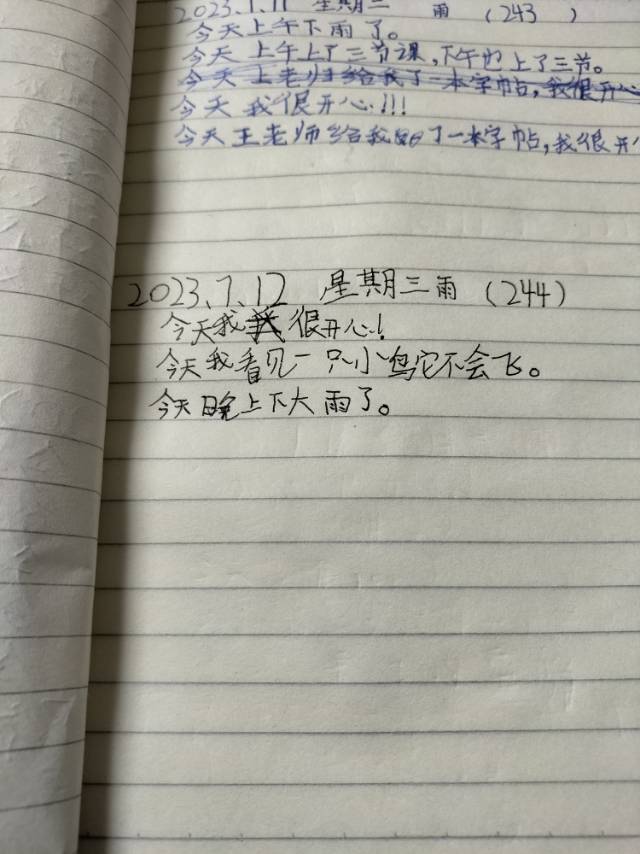 2023.7.11 星期二 雨 (243)
今天上午下雨了。
今天上午上了三节课,下午也上了三节。
今天上老师给我了一本字帖,我很开心
今天我很开心!!!
今天王老师给我的了一本字帖,我很开心
2023.7.12 星期三雨 (244)
今天我很开心!
今天我看见一只小鸟它不会飞。
今天晚上下大雨了。